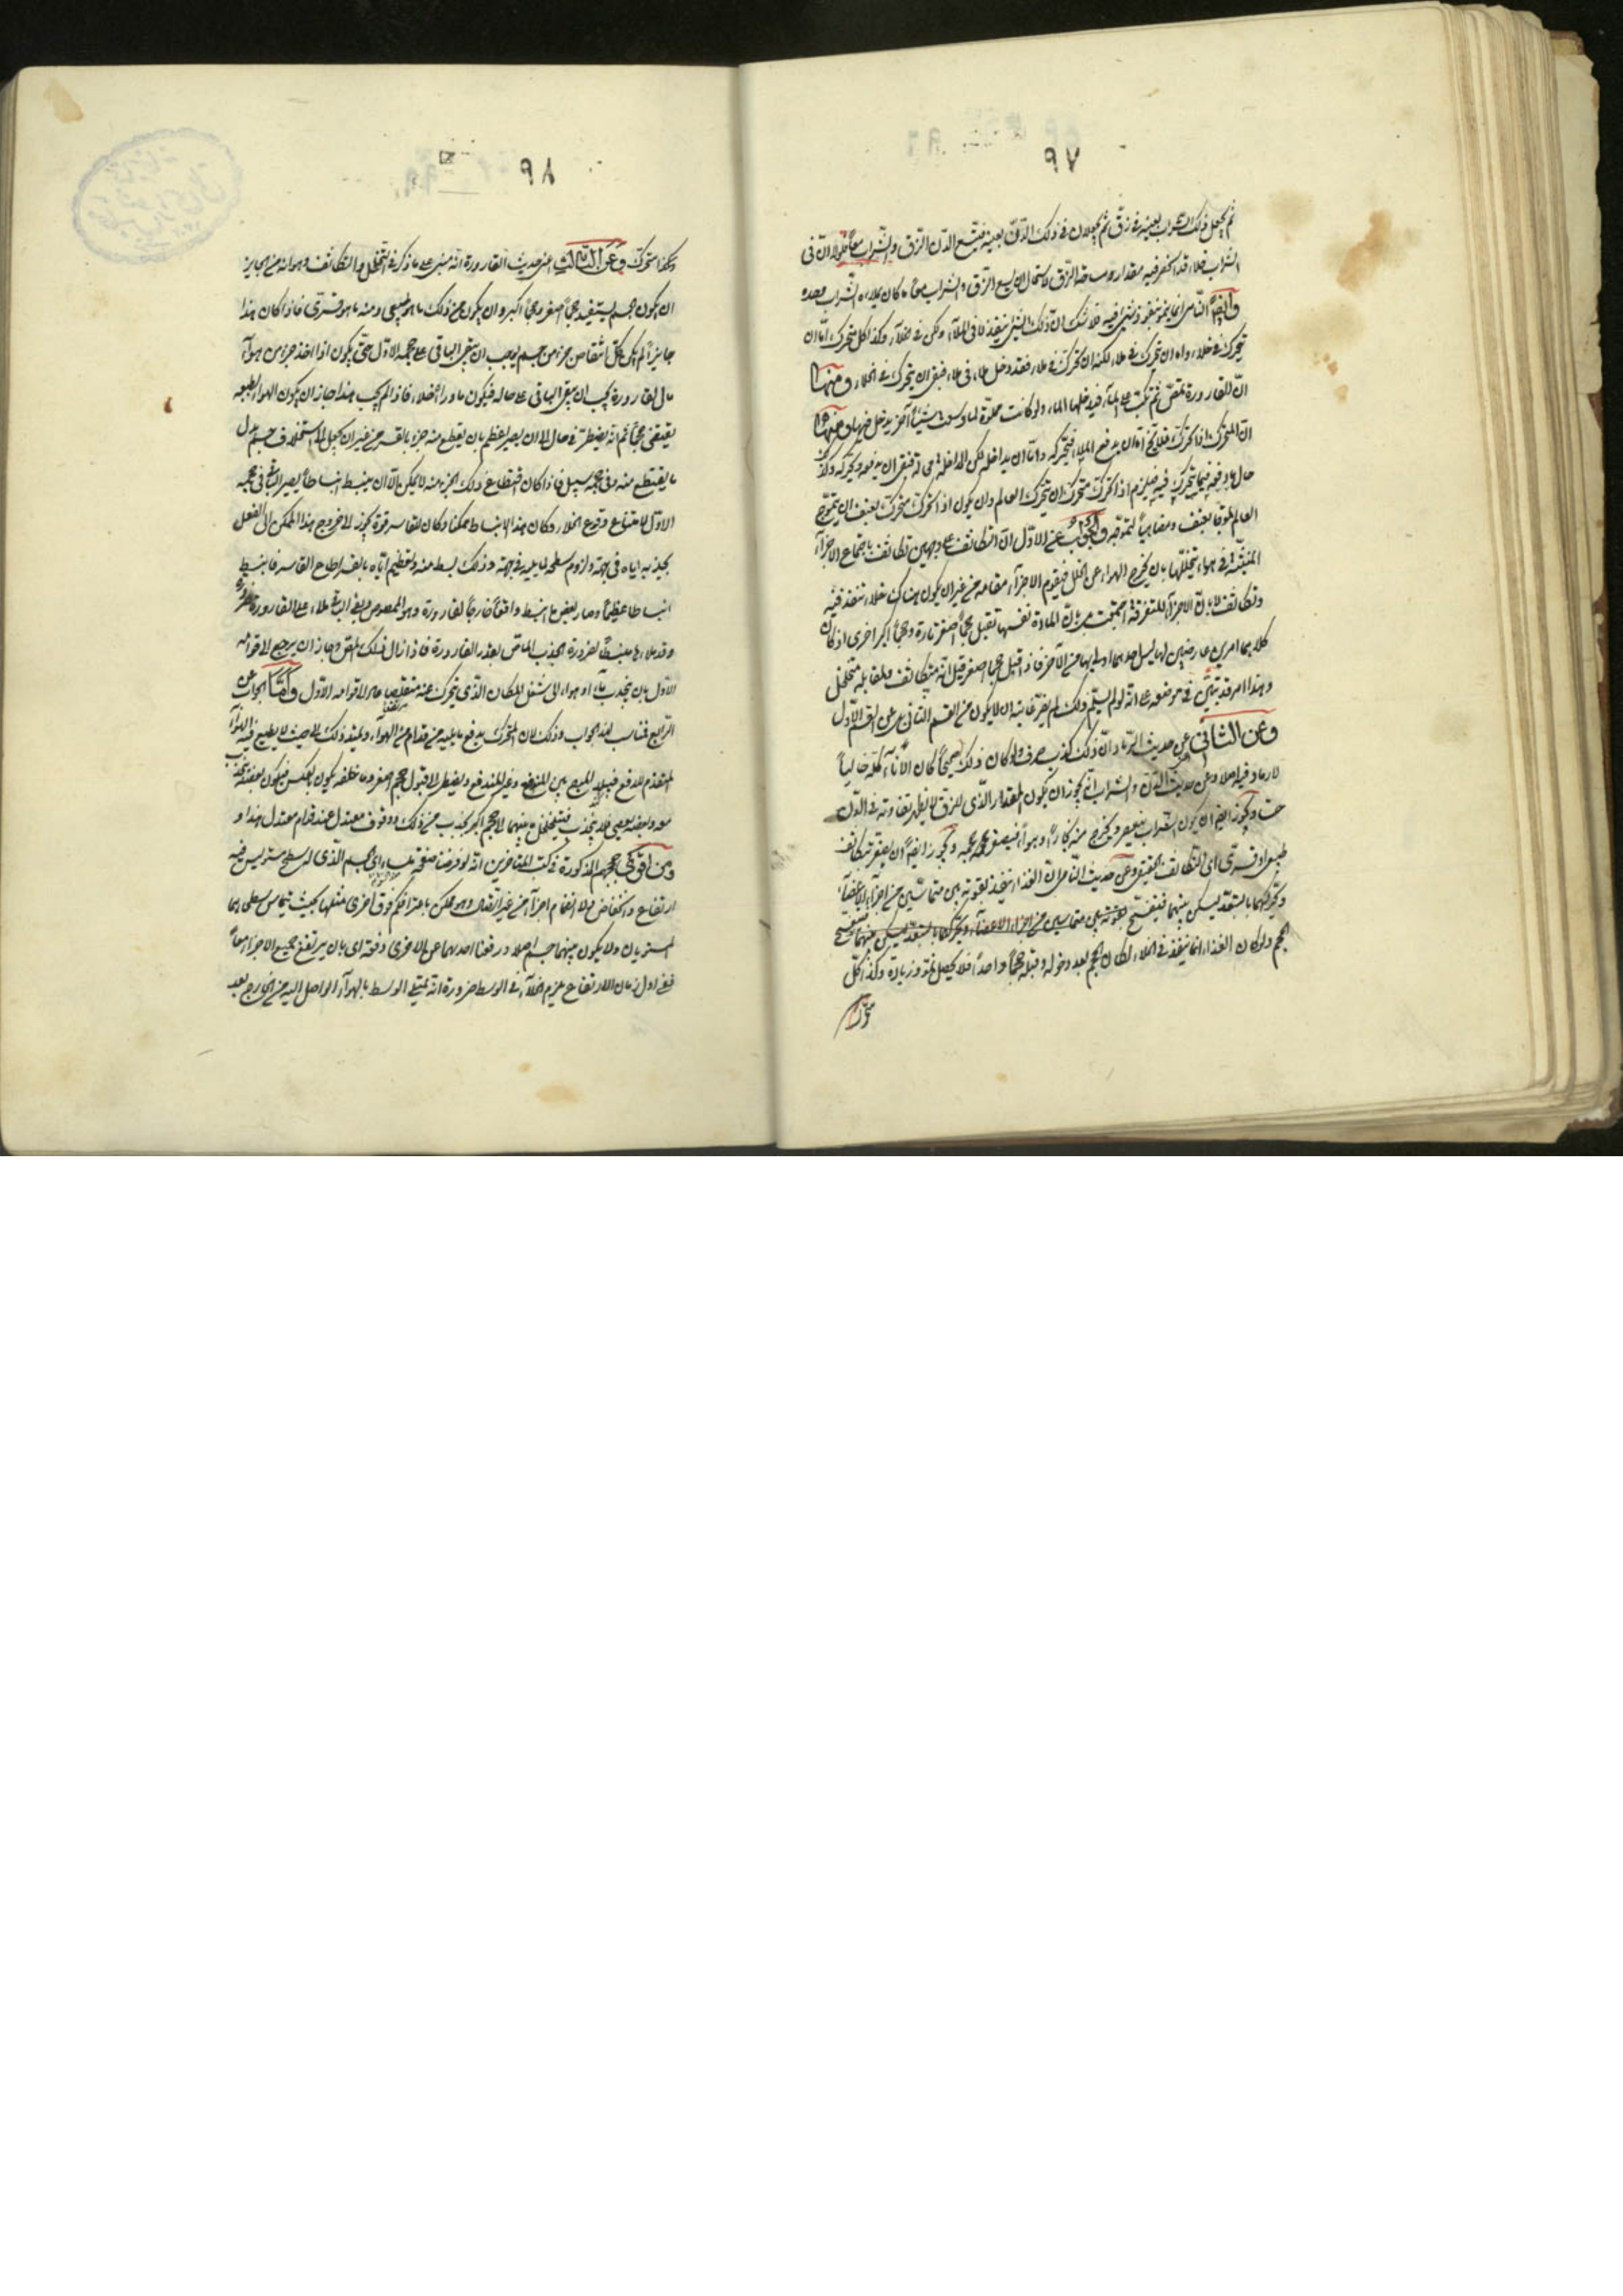 ٩٧
ثم يجعل ذلك الشراب بعينه في زق ثم يجعلان في ذلك الدن بعينه فيتسع الدن الزق والشراب معاً فلولا ان في
الشراب خلاء قد انحصر فيه مقدار مساحة الزق لاستحال ان يسع الزق والشراب معاً ما كان يملاءه الشراب وحده
وايضاً النامي انما ينمو بنفوذ شئ فيه فلا شك ان ذلك الشئ ينفذ لا في الملأ ولكن في الخلاء وكذا كل متحرك اما ان
يتحرك في خلاء واما ان يتحرك في ملاء لكنه ان تحرك في ملاء فقد دخل ملاء في ملاء فبقى ان يتحرك في الخلاء ومنها
ان القارورة تمص ثم تكب على الماء فيدخلها الماء ولو كانت مملوة لما وسعت شيئاً آخر يدخل فيها ومنها
ان المتحرك اذا تحرك فلا يخ اما ان يدفع الملاء فيتحركه واما ان يداخله لكن المداخلة محالة فبقى ان يدفعه ويحركه وكذا
حال ما يدفعه فيما يتحرك فيه فيلزم اذا تحرك متحرك ان يتحرك العالم وان يكون اذا تحرك متحرك بعنف ان يتموج
العالم تموجا بعنف ومضاهياً لتموجه والجواب عن الاول ان التكاثف على وجهين تكاثف باجتماع الاجزاء
المنبثة في هواء يتخللها بان يخرج الهواء عن الخلل فيقوم الاجزاء مقامه من غير ان يكون هناك خلاء تنفذ فيه
وتكاثف لا بان الاجزاء المتفرقة اجتمعت بل بان المادة نفسها تقبل حجماً اصغر تارة وحجماً اكبر اخرى اذ كان
كلاهما امرين عارضين لها ليس احدهما اولى بها من الآخر فاذا قبل حجما اصغر قيل انه متكاثف ولمقابله متخلخل
وهذا امر قد تبين في موضعه على انه لو لم يسلم ذلك لم يضر غايته ان لا يكون من القسم الثاني بل عن القسم الاول
وعن الثاني عن حديث الرماد ان ذلك كذب صرف ولو كان ذلك صحيحاً كان الاناء كله خالياً
لا رماد فيه اصلا وعن حديث الدن والشراب انه يجوز ان يكون المقدار الذي للزق لا يظهر تفاوته في الدن
حسا ويجوز ايضا ان يكون الشراب ينعصر ويخرج منه بخار او هواء فيصغر حجمه ويجوز ايضاً ان يصغر بتكاثف
طبيعي او قسري اي التكاثف الحقيقي وعن حديث النامي ان الغذاء ينفذ بقوته بين متماسين من اجزاء الاعضاء
ويحركهما بالتبعد ليسكن بينهما فينفسح بقوته بين متماسين من اجزاء الاعضاء ويحركهما بالتبعد ليسكن بينهما فينفسح
الحجم ولو كان الغذاء انما ينفذ في الخلاء لكان الحجم بعد دخوله وقبله حجماً واحداً فلا يحصل نمو وزيادة وكذا كل
متحرك
٩٨
وكذا متحرك وعن الثالث اعني حديث القارورة انه مبني على ما ذكر في التخلخل والتكاثف وهو انه من الجايز
ان يكون جسم يستفيد حجماً اصغر وحجماً اكبر وان يكون من ذلك ما هو طبيعي ومنه ما هو قسري فاذا كان هذا
جايزاً لم يكن كل انتقاص جزء من جسم يوجب ان يبقى الباقي على حجمه الاول حتى يكون اذا اخذ جزء من هواء
مال القارورة يجب ان يبقى الباقي على حاله فيكون ما وراءه خلاء فاذا لم يجب هذا جاز ان يكون الهواء بطبعه
يقتضي حجماً ثم انه يضطر في حال الى ان يصير اعظم بان يقطع منه جزء بالقسر من غير ان يجعل الى استخلاف جسم بدل
ما يقتطع منه في حجمه سبيل فاذا كان اقتطاع ذلك الجزء منه لا يمكن الا ان ينبسط انبساطاً يصير الباقي في حجم
الاول لامتناع وقوع الخلاء وكان هذا الانبساط ممكنا وكان للقاسر قوة يحوز لاخروج هذا الممكن الى الفعل
بجذبه اياه في جهة ولزوم سطحه لما يليه في جهة وذلك بسط منه وتعظيم اياه بالقسر اطاع القاسر فانبسط
انبساطا عظيماً وصار بعض ما انبسط واقعاً خارجاً القارورة وهو الممصوص وبقي الباقي ملاء على القارورة ضرورة
وقد ملاءها منبسطاً لضرورة الجذب الماص بقدر القارورة فاذا زال ذلك المص وجاز ان يرجع الى قوامه
الاول بان ينجذب ماء او هواء الى شغل المكان الذي يتحرك عنه متقلصا عاد الى قوامه الاول واما الجواب عن
الرابع فيناسب هذا الجواب وذلك لان المتحرك يدفع ما يليه من قدام من الهواء ويمتد ذلك الى حيث لا يطيع فيه الهواء
المتقدم للدفع فيتلبد الموج بين المندفع وغير المندفع ويضطر الى قبول حجم اصغر وما خلفه يكون بالعكس فيكون بعضه ينجذب
معه وبعضه يعصي فلا ينجذب فيتخلخل ما بينهما الى حجم اكبر يحدث من ذلك وقوف معتدل عند قوام معتدل هذا و
ومن اقوى حججهم المذكورة في كتب المتأخرين انه لو فرضنا صفحة ملساء اي الجسم الذي له سطح مستو ليس فيه
ارتفاع وانخفاض ولا انضمام اجزاء من غير اتصال وهو ممكن بالاتفاق فوق اخرى مثلها بحيث يتماس سطحاهما
المستويان ولا يكون بينهما جسم اصلا ورفعنا احديهما عن الاخرى دفعة اي بان يرتفع جميع الاجزاء معاً
ففي اول زمان الارتفاع يلزم الخلاء في الوسط ضرورة انه يمتلى الوسط بالهواء الواصل اليه من الخارج بعد